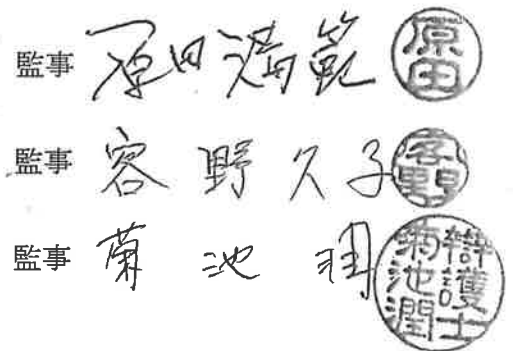 監事 原田満範 原田
監事 容野久子 容野
監事 菊池潤 辯護士菊池潤